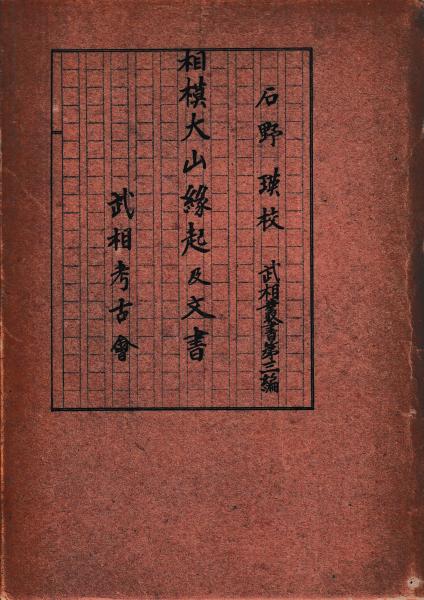 石野瑛校 武相叢書第三編
相模大山緣起及文書
武相考古會